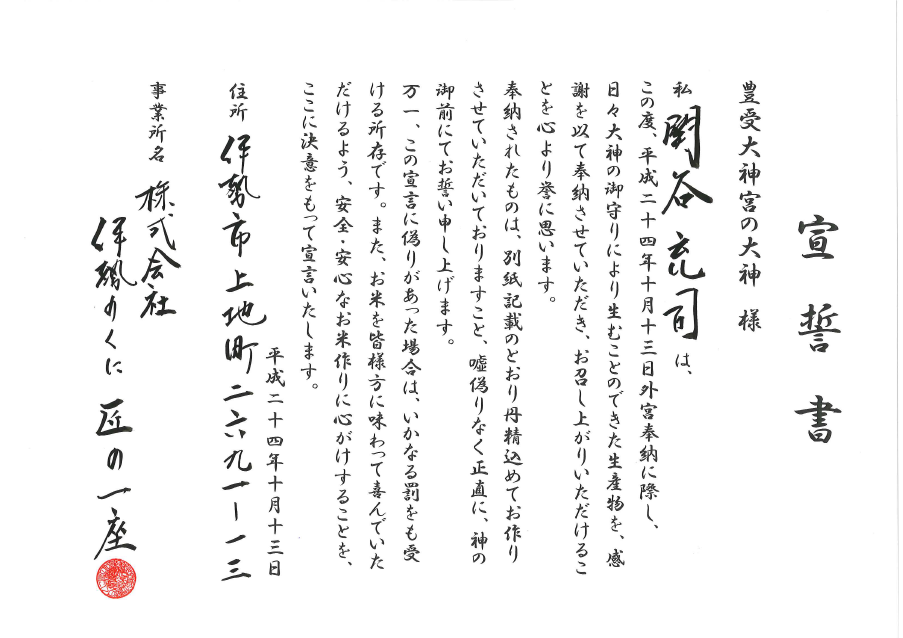 宣誓書
豊受大神宮の大神 様
私 関谷 充司 は、
この度、平成二十四年十月十三日外宮奉納に際し、
日々大神の御守りにより生むことのできた生産物を、感
謝を以て奉納させていただき、お召し上がりいただけるこ
とを心より誉に思います。
奉納されたものは、別紙記載のとおり丹精込めてお作り
させていただいておりますこと、嘘偽りなく正直に、神の
御前にてお誓い申し上げます。
万一、この宣言に偽りがあった場合は、いかなる罰をも受
ける所存です。また、お米を皆様方に味わって喜んでいた
だけるよう、安全・安心なお米作りに心がけすることを、
ここに決意をもって宣言いたします。
平成二十四年十月十三日
住所 伊勢市上地町二六九一ー一三
事業所名 株式会社
伊勢のくに 匠の一座